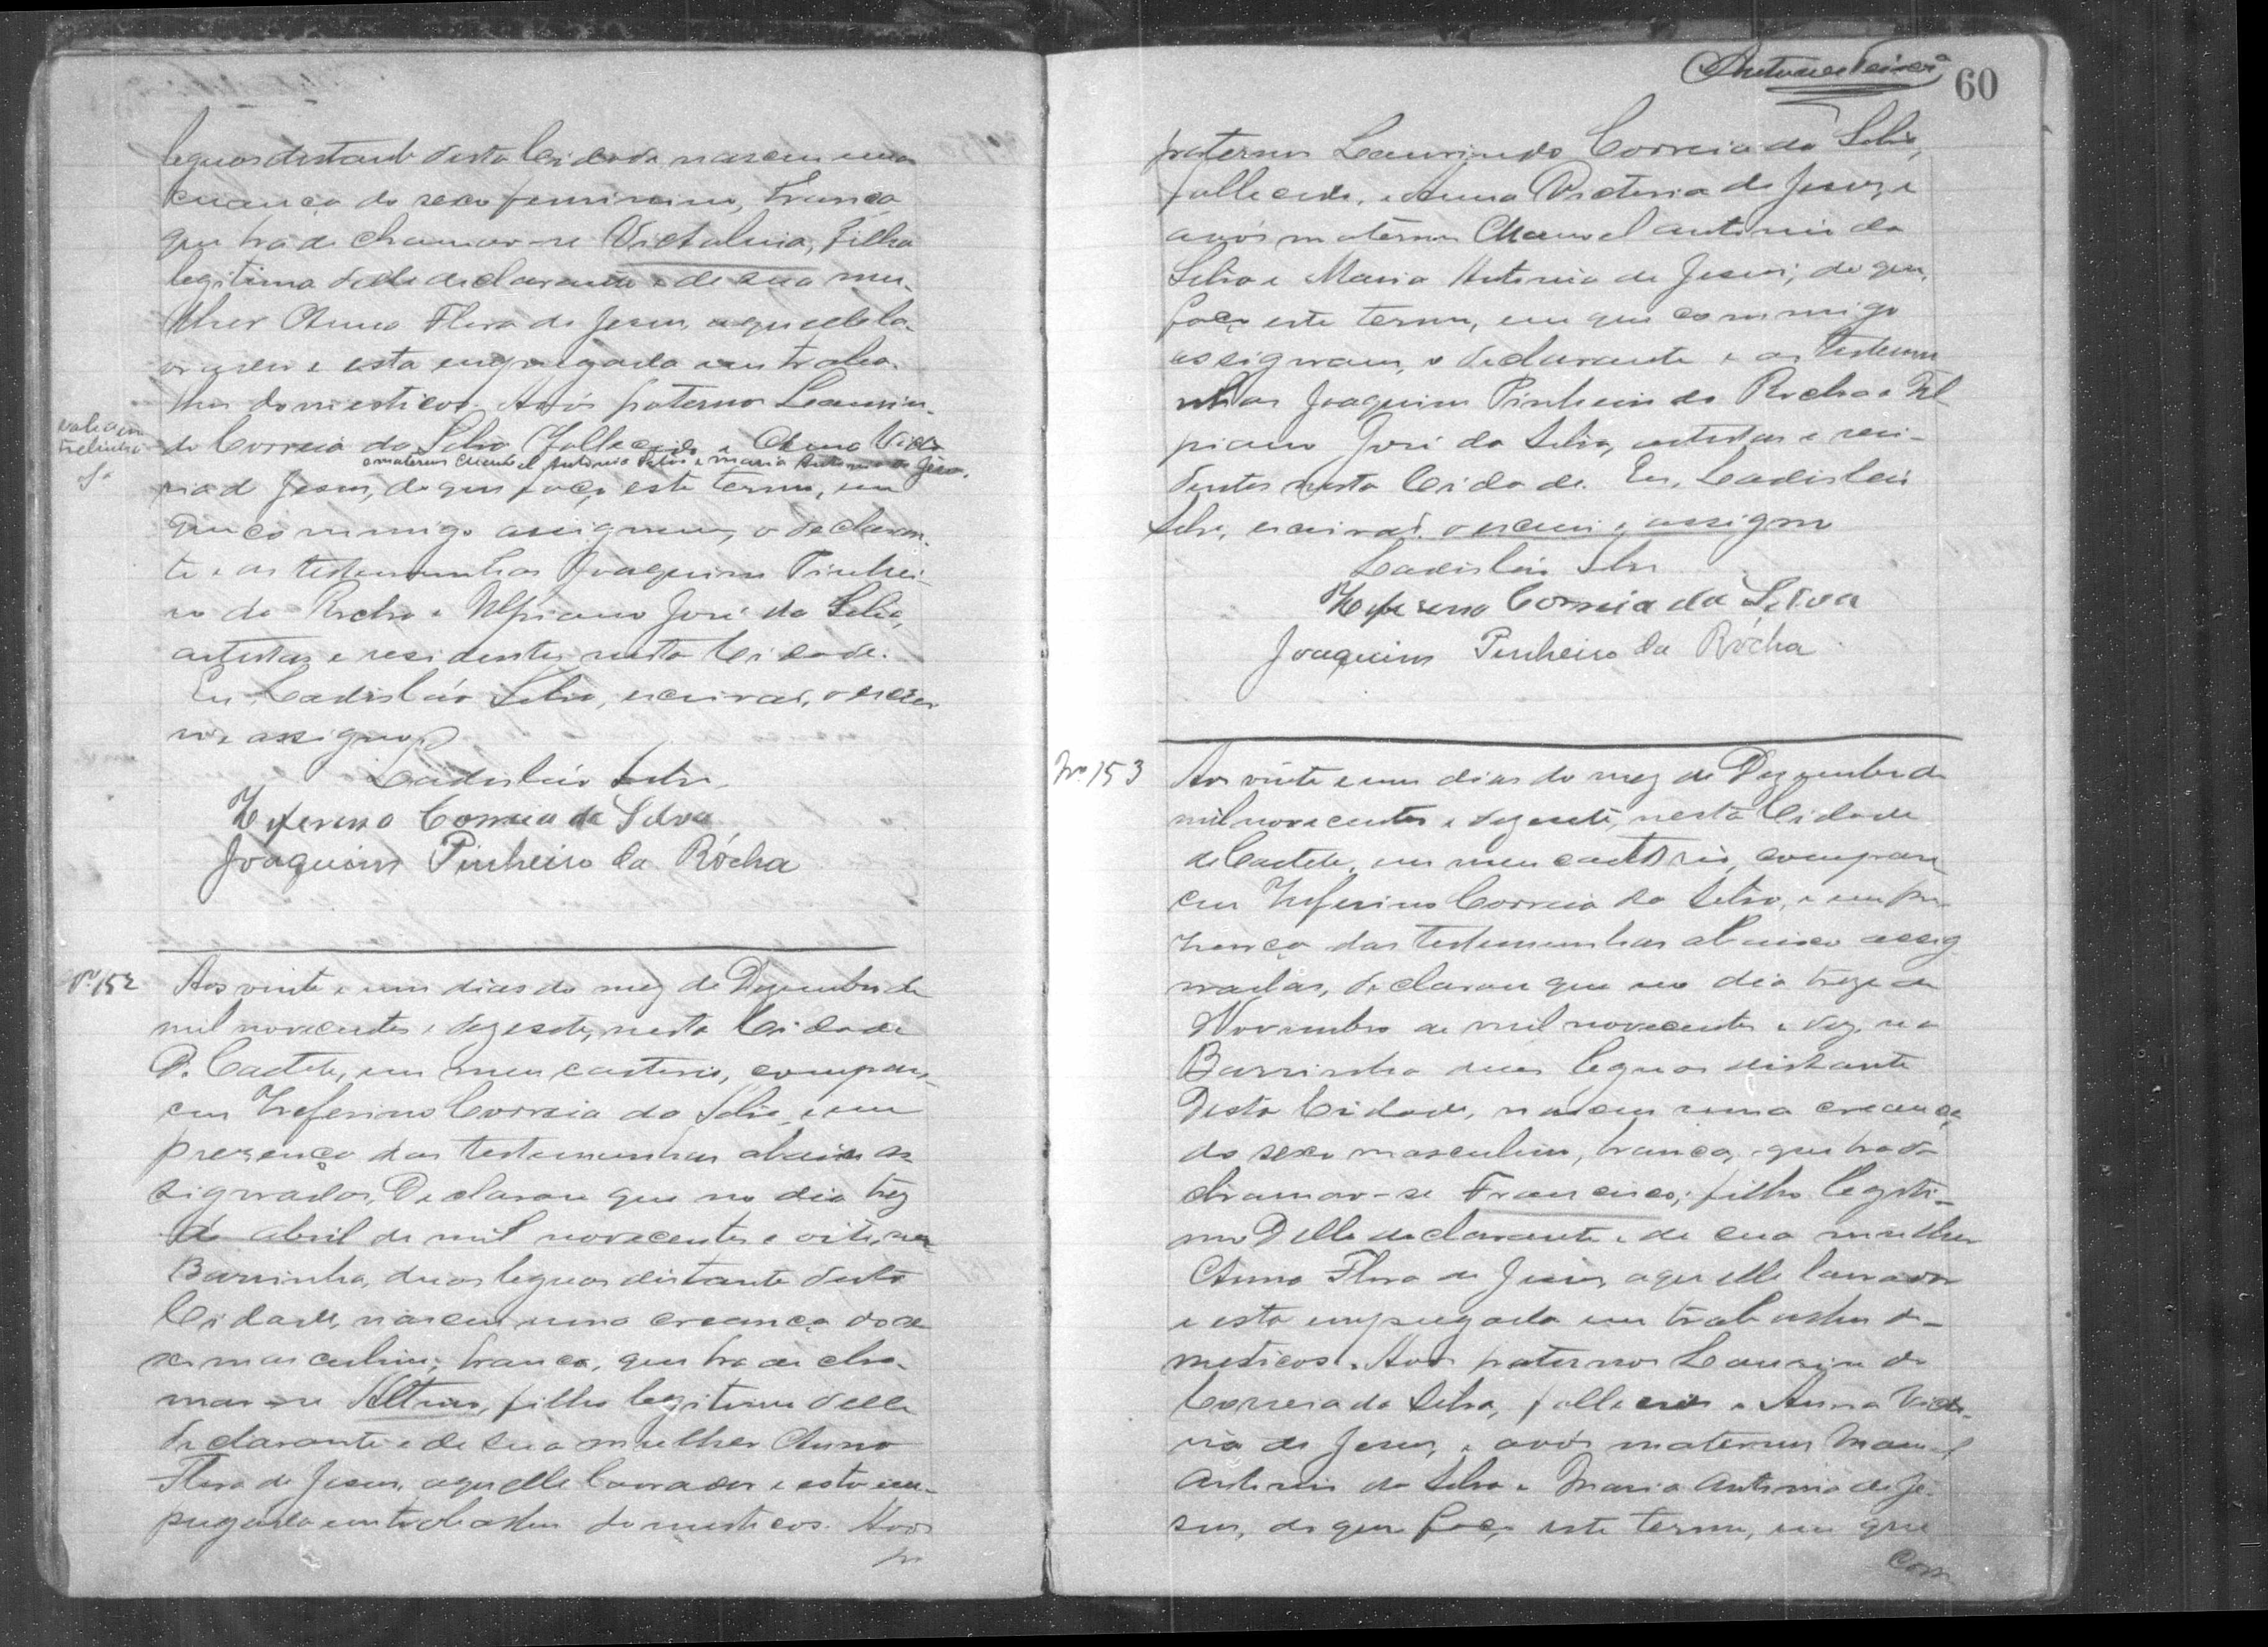 leguas distante desta Cidade nasceu uma
creança do sexo feminino, branca
que ha de chamar-se Victalina, filha
legitima delle declarante e de sua mu-
lher Anna Flora de Jesus, aquelle la-
vrador e esta empregada em traba-
lhos domesticos. Avós paternos Laurin-
do Correia da Silva, fallecido e Anna Victo
e maternos Manoel Antonio Silva e Maria Antonia de Jesus.
ria de Jesus, de que faço este termo, em
que commigo assignam, o declaran-
te e as testemunhas Joaquim Pinhei-
ro da Rocha e Ulpiano José da Silva,
artistas e residentes nesta Cidade.
Eu, Ladisláo Silva, escrivão, o escre
vi e assigno
Ladisláo Silva
Zeferino Correia da Silva
Joaquim Pinheiro da Rócha
vale a en
trelinha
Sa
Nº 152
Aos vinte e um dias do mez de Dezembro de
mil novecentos e dezesete, nesta Cidade
de Caeteté, em meu cartorio, compare-
ceu Zeferino Correia da Silva, e em
presença das testemunhas abaixo as
signadas, Declarou que no dia trez
de abril de mil novecentos e oito, na
Barrinha, duas leguas distante desta
Cidade, nasceu uma creança do se
xo masculino, branca, que ha de cha-
mar-se Altino, filho legitimo delle
declarante e de sua mulher Anna
Flora de Jesus, aquelle lavrador e esta em-
pregada em trabalhos domesticos. Avós
60
paternos Laurindo Correia da Silva,
fallecido, e Anna Victoria de Jesus, e
avós maternos Manoel Antonio da
Silva e Maria Antonia de Jesus; de que,
faço este termo, em que commigo
assignam, o declarante e as testemu
nhas Joaquim Pinheiro da Rocha e Ul
piano José da Silva, artistas e resi-
dentes nesta Cidade. Eu, Ladisláo
Silva, escrivão, o escrevi e assigno
Ladisláo Silva
Zeferino Correia da Silva
Joaquim Pinheiro da Rócha
Nº 153
Aos vinte e um dias do mez de Dezembro de
mil novecentos e dezesete, nesta Cidade
de Caeteté, em meu cartorio, compare
ceu Zeferino Correia da Silva, e em pre
sença das testemunhas abaixo assig
nadas, declarou que no dia treze de
Novembro de mil novecentos e dez, na
Barrinha duas leguas distante
desta Cidade, nasceu uma creança
do sexo masculino, branca, que ha de
chamar-se Francisco; filho legiti-
mo delle declarante e de sua mulher
Anna Flora de Jesus, aquelle lavrador
e esta empregada em trabalhos do-
mesticos. Avós paternos Laurindo
Correia da Silva, fallecido e Anna Victo-
ria de Jesus, e avós maternos Manoel
Antonio da Silva e Maria Antonia de Je-
sus, de que faço este termo, em que
com